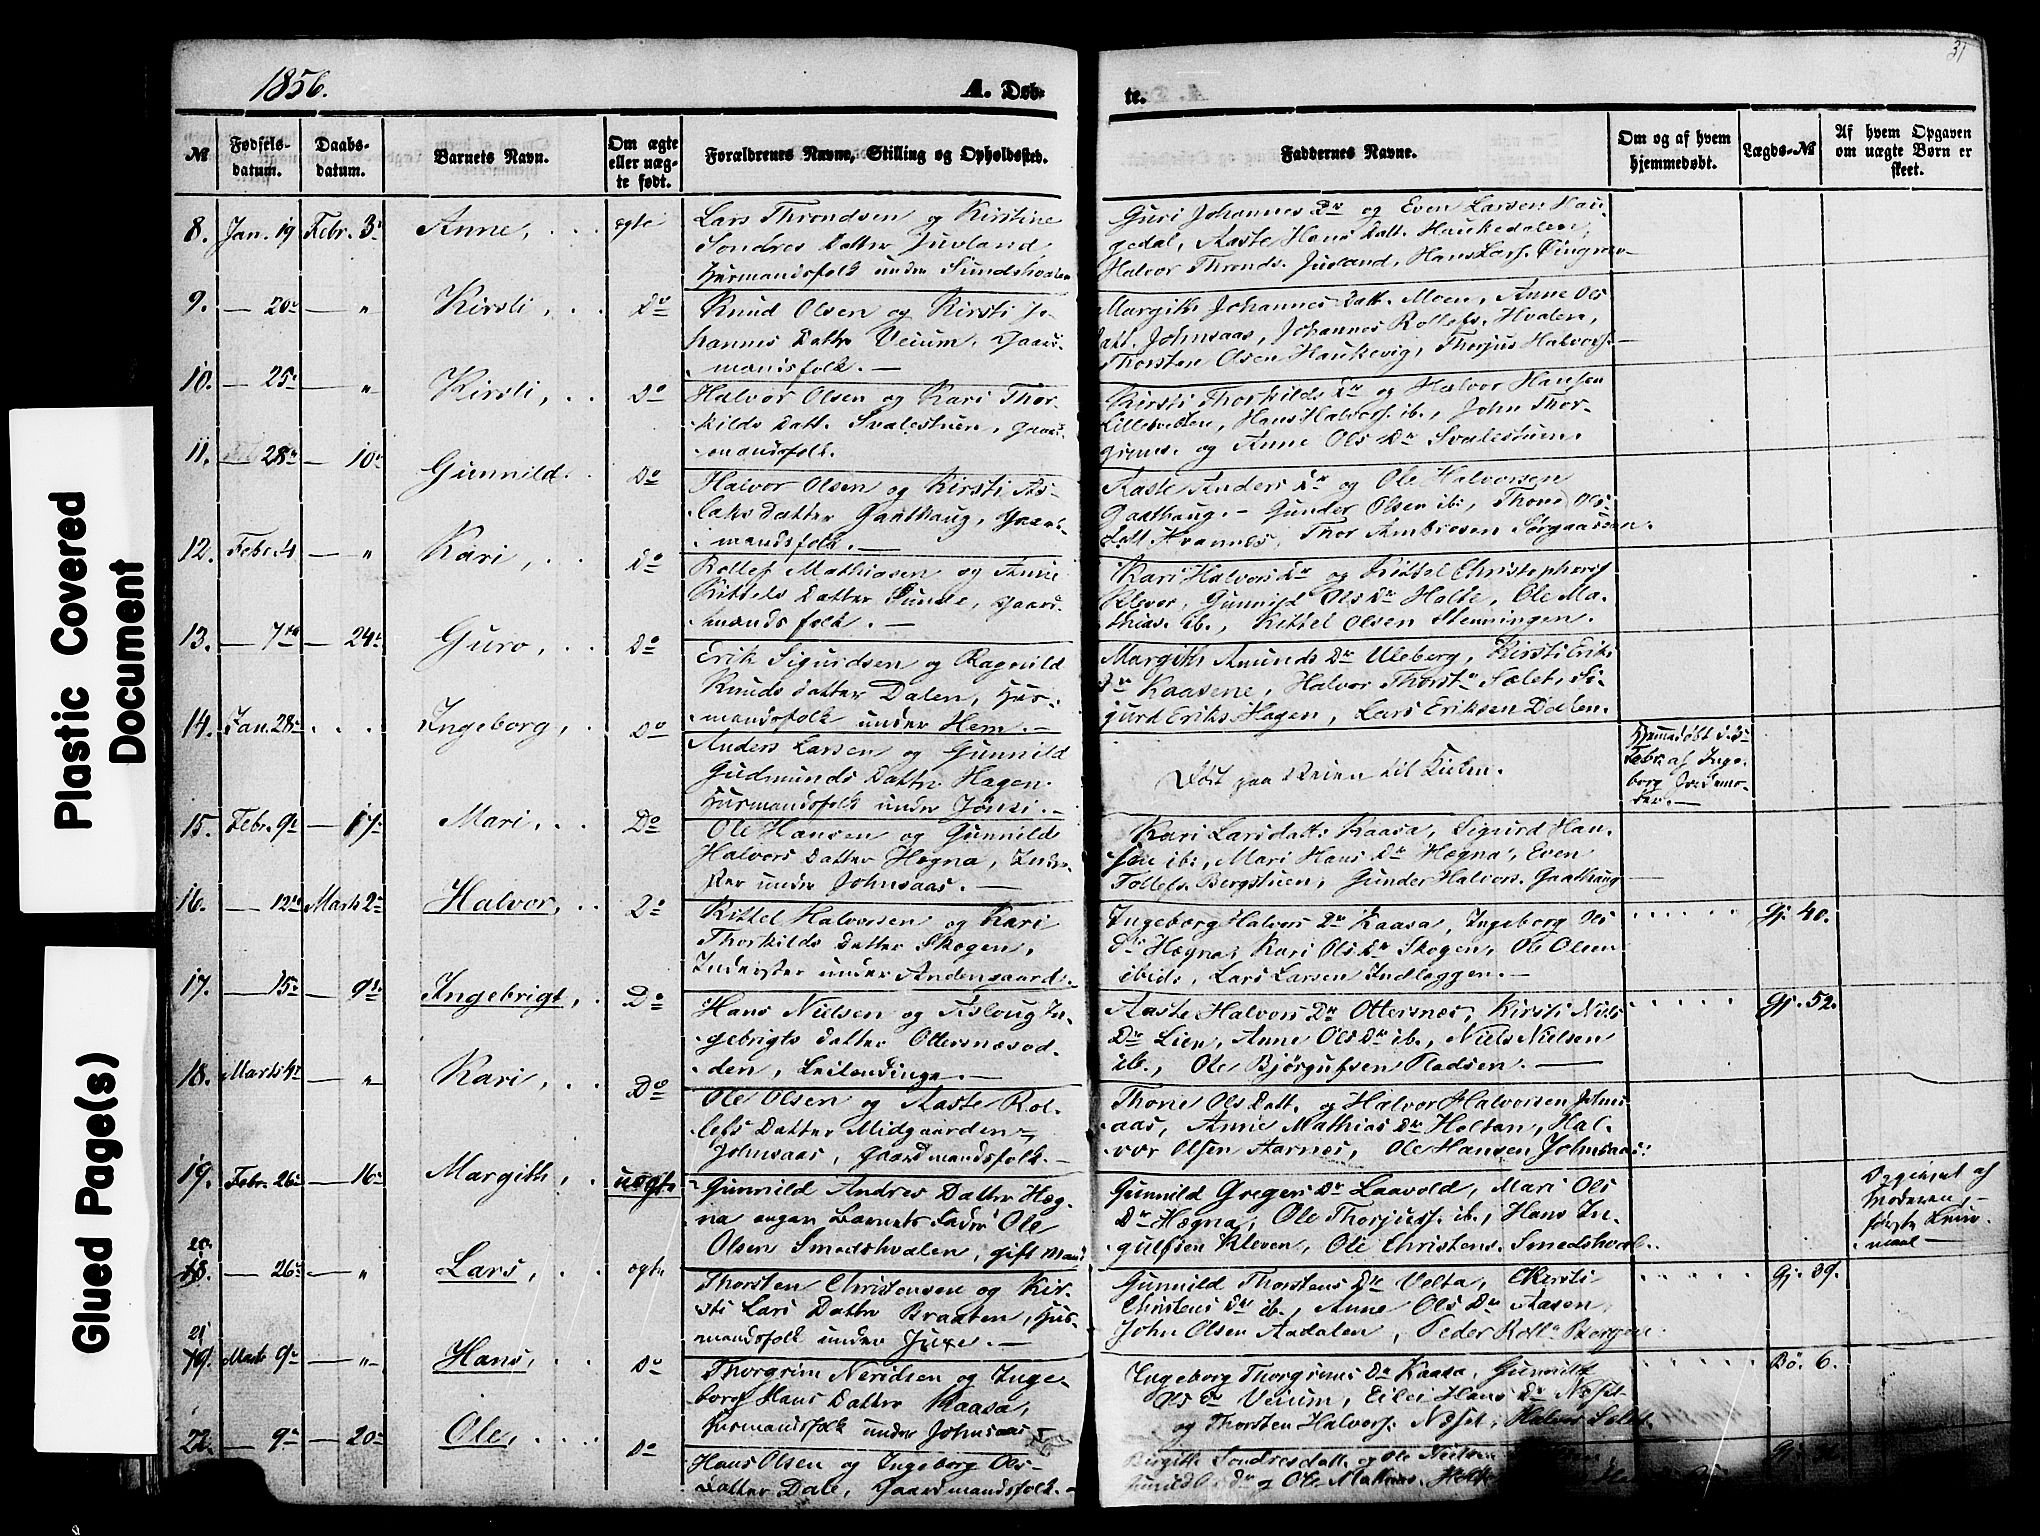 1856.
A. Døb-
te.
31
№
Fødsels-
datum.
Daabs-
datum.
Barnets Navn.
Om ægte
eller uæg-
te født.
Forældrenes Navne, Stilling og Opholdssted.
Faddernes Navne.
Om og af hvem
hjemmedøbt.
Lægds-№
Af hvem Opgaven
om uægte Børn er
skeet.
8. Jan. 19 Febr. 3 Anne, . . . egte
Lars Throndsen og Kirstine
Sondres Datter Juvland
Husmandsfolk under Sundshvalen
Guri Johannes Dr og Even Larsen Hau-
gedal, Aaste Hans Datt. Haukedalen,
Halvor Thronds. Juvland, Hans Lars.
9. — 20 — " Kirsli, . . Do
Knud Olsen og Kirsti Jo-
hannes Dattr Veium, Gaard-
mandsfolk. —
Margith Johannes Datt. Moen, Anne Ols
Datt. Johnsaas, Johannes Rollefs. Hvalen,
Thorsten Olsen Haukevig, Thorjus Halvors. —
10. — 25 — " Kirsli, . . Do
Halvor Olsen og Kari Thor-
kilds Datt. Svalestuen, Gaard-
mandsfolk.
Kirsti Thorkilds Dr og Halvor Hansen
Lillekvesten, Hans Halvors. ib., John Thor-
grims. og Anne Ols Dr Svalestuen.
11. — 28 — 10 Gunnild. . Do
Halvor Olsen og Kirsti As-
laks Datter Gaathaug, Gaard-
mandsfolk. —
Aaste Anders Dr og Ole Halvorsen
Gaathaug. — Gunder Olsen ib., Thone Ols
Datt. Hvannes, Thor Ambrosen Sørgaarden.
12. Febr. 4 — " Kari, . . Do
Rollef Mathiasen og Anne
Kittels Datter Sunde, Gaard-
mandsfolk. —
Kari Halvors Dr og Kittel Christophers.
Klever, Gunnild Ols Dr Holte, Ole Ma-
thias. ib., Kittel Olsen Stenningen.
13. — 7 — 24 Guro, . . Do
Erik Sigurdsen og Ragnild
Knuds Datter Dalen, Hus-
mandsfolk under Hem. —
Margith Amunds Dr Uleberg, Kirsti Eriks
Dr Kaasene, Halvor Thorst. Sælet, Si-
gurd Eriks. Hagen, Lars Eriksen Dalen.
14. Jan. 28 . . . Ingeborg, . Do
Anders Larsen og Gunnild
Gudmunds Datter Hagen
Husmandsfolk under Jønsi. —
Død paa Veien til Kirken.
Hjemmedøbt d. 3
Febr. af Inge-
borg Jordemo-
der. —
15. Febr. 9 — 17 Mari, . . Do
Ole Hansen og Gunnild
Halvors Datter Hægna, Inder-
ster under Johnsaas. —
Kari Larsdatt. Kaasa, Sigurd Han-
sen ib., Mari Hans Dr Hægna, Even
Tollefs. Bergstuen, Gunder Halvors. Gaathaug
16. — 12 Marts 2 Halvor, . . Do
Kittel Halvorsen og Kari
Thorkilds Datter Skogen,
Inderster under Andersgaard. —
Ingeborg Halvors Dr Kaasa, Ingeborg Ols
Dr Hægna, Kari Ols Dr Skogen, Ole Olsen
ibid., Lars Larsen Indleggen. —
Gj. 40.
17. — 15 — 9 Ingebrigt, . Do
Hans Nielsen og Aslaug In-
gebrigts Datter Ottersnæsod-
den, Leilendinge. —
Aaste Halvors Dr Ottersnæs, Kirsti Niels
Dr Lien, Anne Ols Dr ib., Niels Nielsen
ib., Ole Bjørgufsen Fladsen. —
Gj. 52.
18. Marts — " Kari, . . Do
Ole Olsen og Aaste Rol-
lefs Datter Midgaarden,
Johnsaas, Gaardmandsfolk. —
Thone Ols Datt. og Halvor Halvorsen Johns-
aas, Anne Mathias Dr Holtan, Hal-
vor Olsen Aarnes, Ole Hansen Johnsaas.
19. Febr. 26 — 16 Margith, . uægte
Gunnild Andres Datter Hæg-
na angav Barnets Fader Ole
Olsen Smedshvalen, gift Mand
Gunnild Gregers Dr Laavold, Mari Ols
Dr Hægna, Ole Thorjuss. ib., Hans In-
gulfsen Kleven, Ole Christens. Smedshval.
Opgivet af
Moderen,
første Leier-
maal —
20. 18. — 26 — " Lars, . . egte
Thorsten Christensen og Kir-
sti Lars Datter Braaten, Hus-
mandsfolk under Juxe. —
Gunnild Thorstens Dr Volta, Kirsti
Christens Dr ib., Anne Ols Dr Aasen,
John Olsen Aadalen, Peder Roll. Bergen.
Gj. 39.
21 19. Marts 9 — " Hans, . . Do
Thorgrim Neridsen og Inge-
borg Hans Datter Kaasa,
Husmandsfolk under Johnsaas
Ingeborg Thorgrims Dr Kaasa, Gunnild
Ols Dr Veium, Eilef Hans Dr Næset
og Thorsten Halvors. Næset, Halvor Sælet.
Bö. 6.
22. — 9 — 20 Ole, . . . Do
Hans Olsen og Ingeborg Ols-
Datter Dale, Gaardmandsfolk. —
Birgitte Sondresdatt. og Ole Nielsen
Gunild Ols Dr og Ole Mathias. Holte
Gj.
Plastic Covered
Document
Glued Page(s)